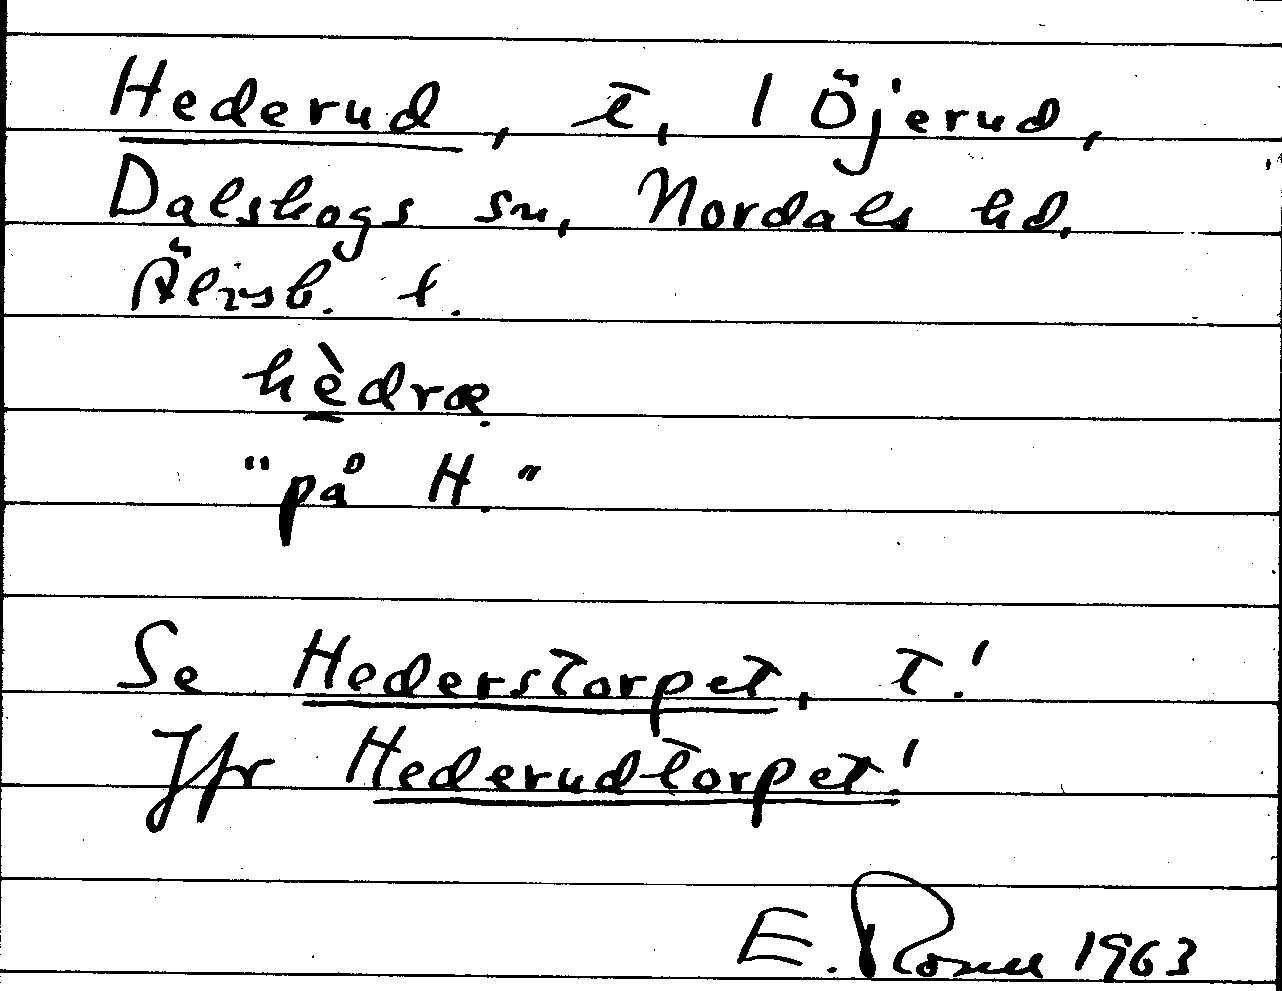 Hederud, t, 1 Öjerud,
Dalskogs sn, Nordals hd.
Älvsb. l.
hèdræ.
"på H."
Se Hederstorpet, t.!
Jfr Hederudtorpet!
E. 1963